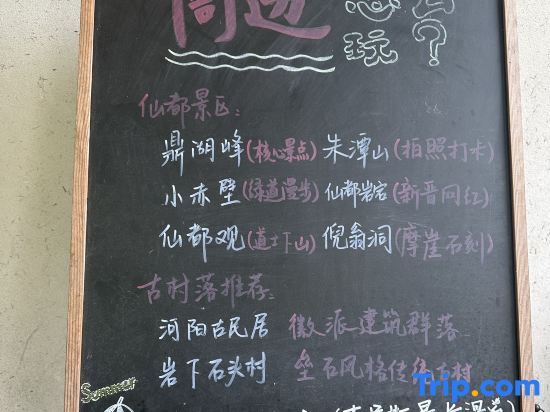 周边怎么玩？
仙都景区：
鼎湖峰(核心景点) 朱潭山(拍照打卡)
小赤壁(绿道漫步) 仙都岩宕(新晋网红)
仙都观(道士下山) 倪翁洞(摩崖石刻)
古村落推荐：
河阳古民居 徽派建筑群落
岩下石头村 垒石风格传统古村
Summer
Trip.com